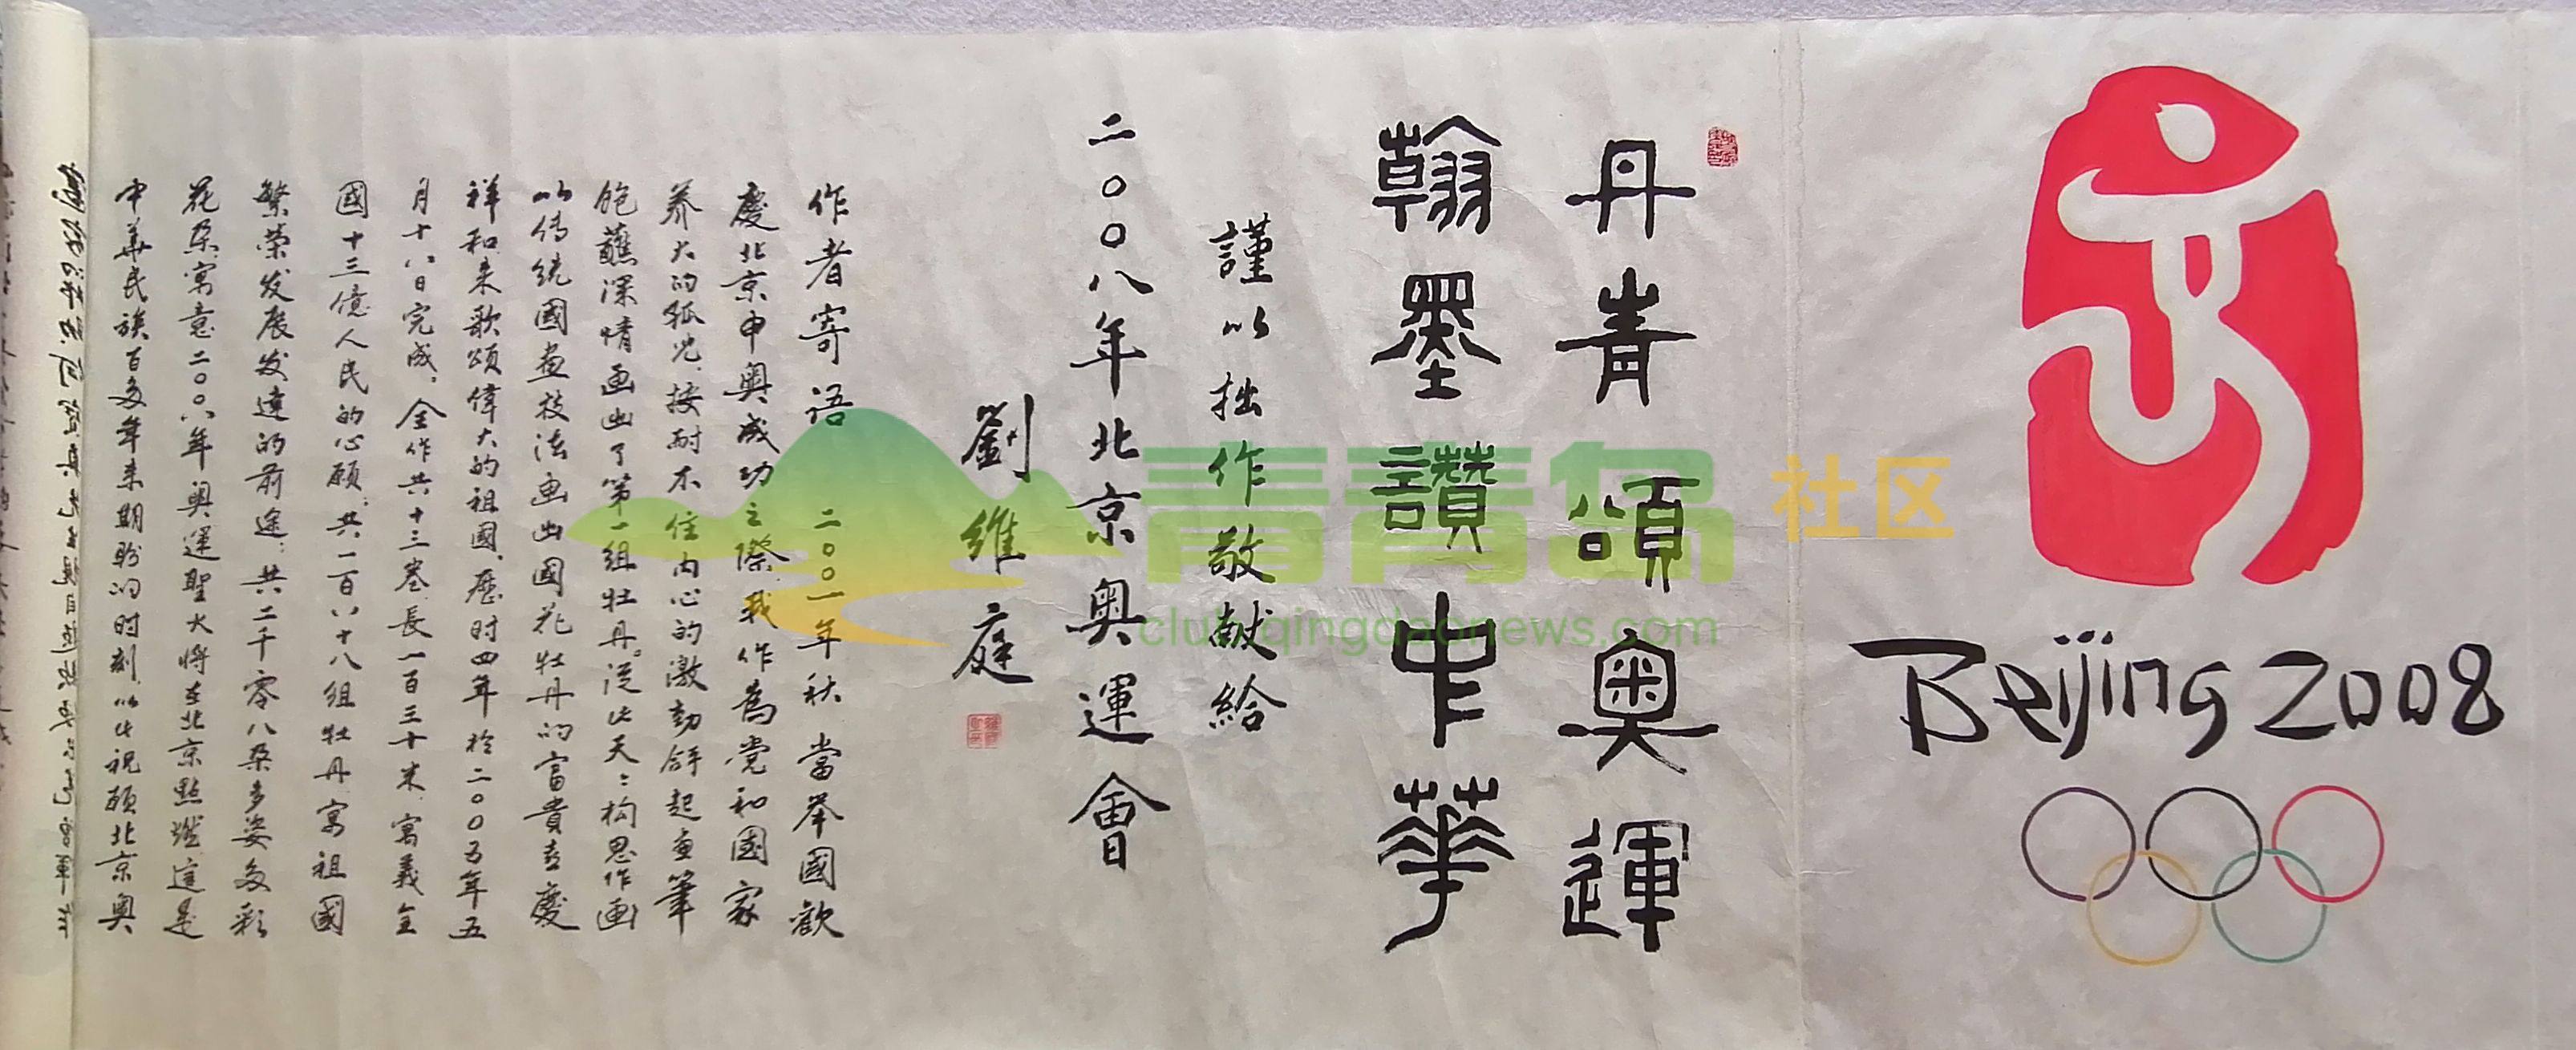 Beijing 2008
丹青頌奥運
翰墨讚中華
謹以拙作敬献給
二〇〇八年北京奥運會
劉維庭
作者寄语 二〇〇一年秋當举國歡
慶北京申奥成功之際我作為党和國家
养大的孤児.按耐不住内心的激動舒起画筆
飽蘸深情画出了第一组牡丹。從此天天构思作画
以传统國画技法画出國花牡丹的富貴喜慶
祥和来歌頌偉大的祖國.歷时四年於二〇〇五年五
月十八日完成.全作共十三卷.長一百三十米.寓義全
國十三億人民的心願.共一百八十八组牡丹.寓祖國
繁荣发展发達的前途;共二千零八朵多姿多彩
花朵寓意二〇〇八年奥運聖火將在北京點燃這是
中華民族百多年来期盼的时刻.以此祝願北京奥
青青岛社区
club.qingdaonews.com